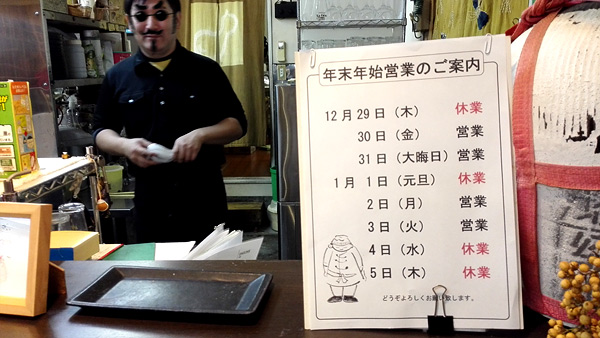 年末年始営業のご案内
12月29日（木） 休業
30日（金） 営業
31日（大晦日） 営業
1月 1日（元旦） 休業
2日（月） 営業
3日（火） 営業
4日（水） 休業
5日（木） 休業
どうぞよろしくお願い致します。